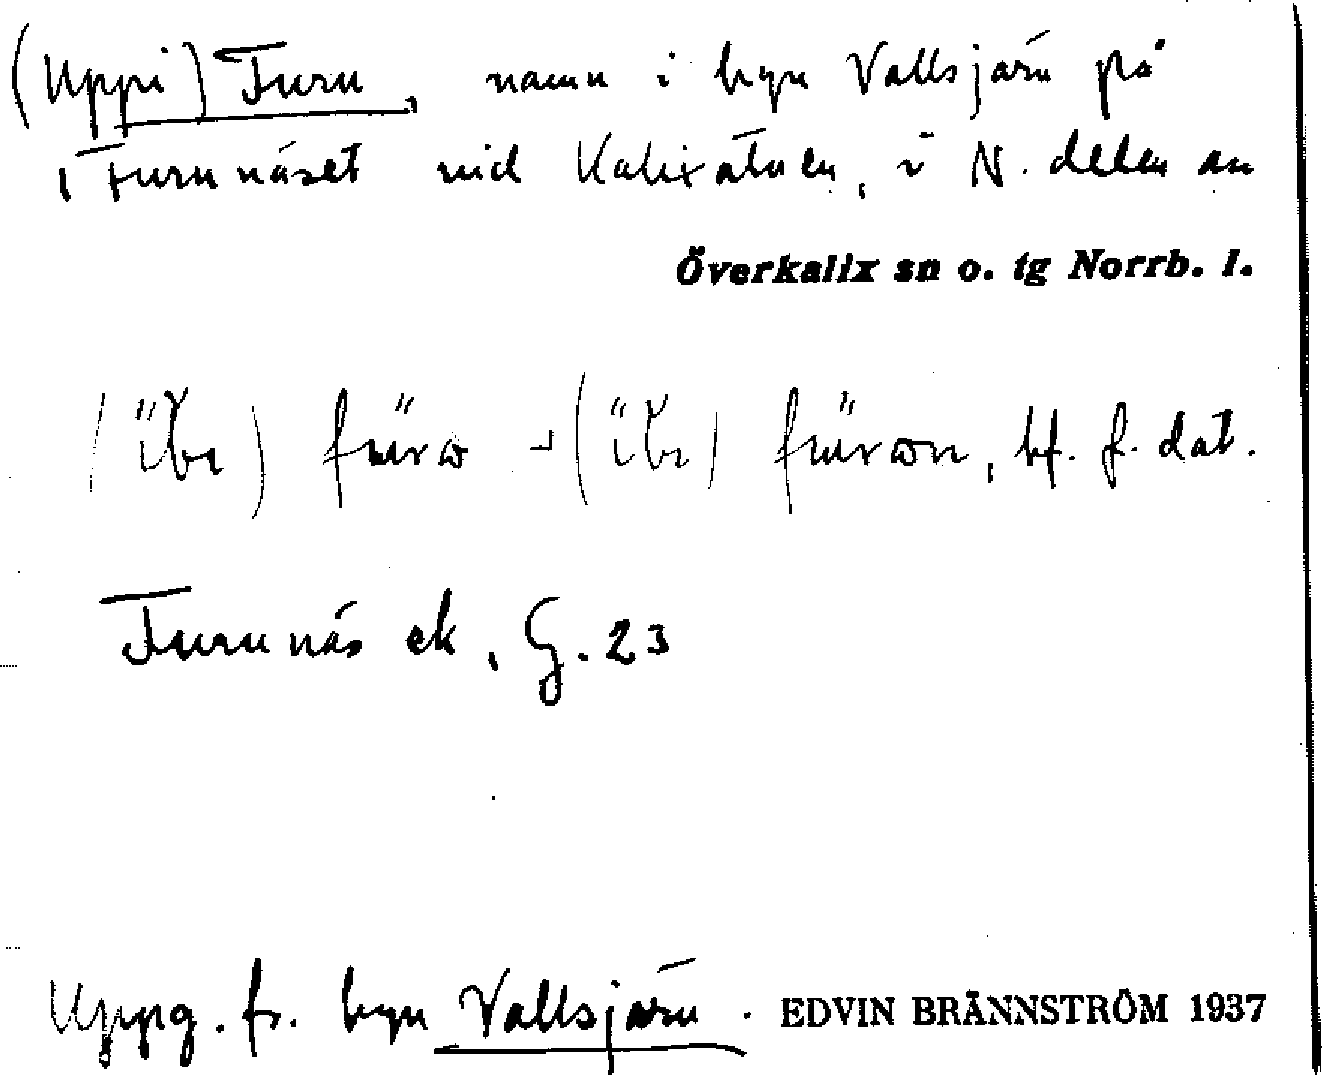 (Uppi) Furu, namn i byn Vallsjärv på
Furunäset vid Kalixälven, i N. delen av
Överkalix sn o. tg Norrb. l.
bf. f. dat.
Furunäs ek, G. 23
Uppg. fr. byn Vallsjärv. EDVIN BRÄNNSTRÖM 1937